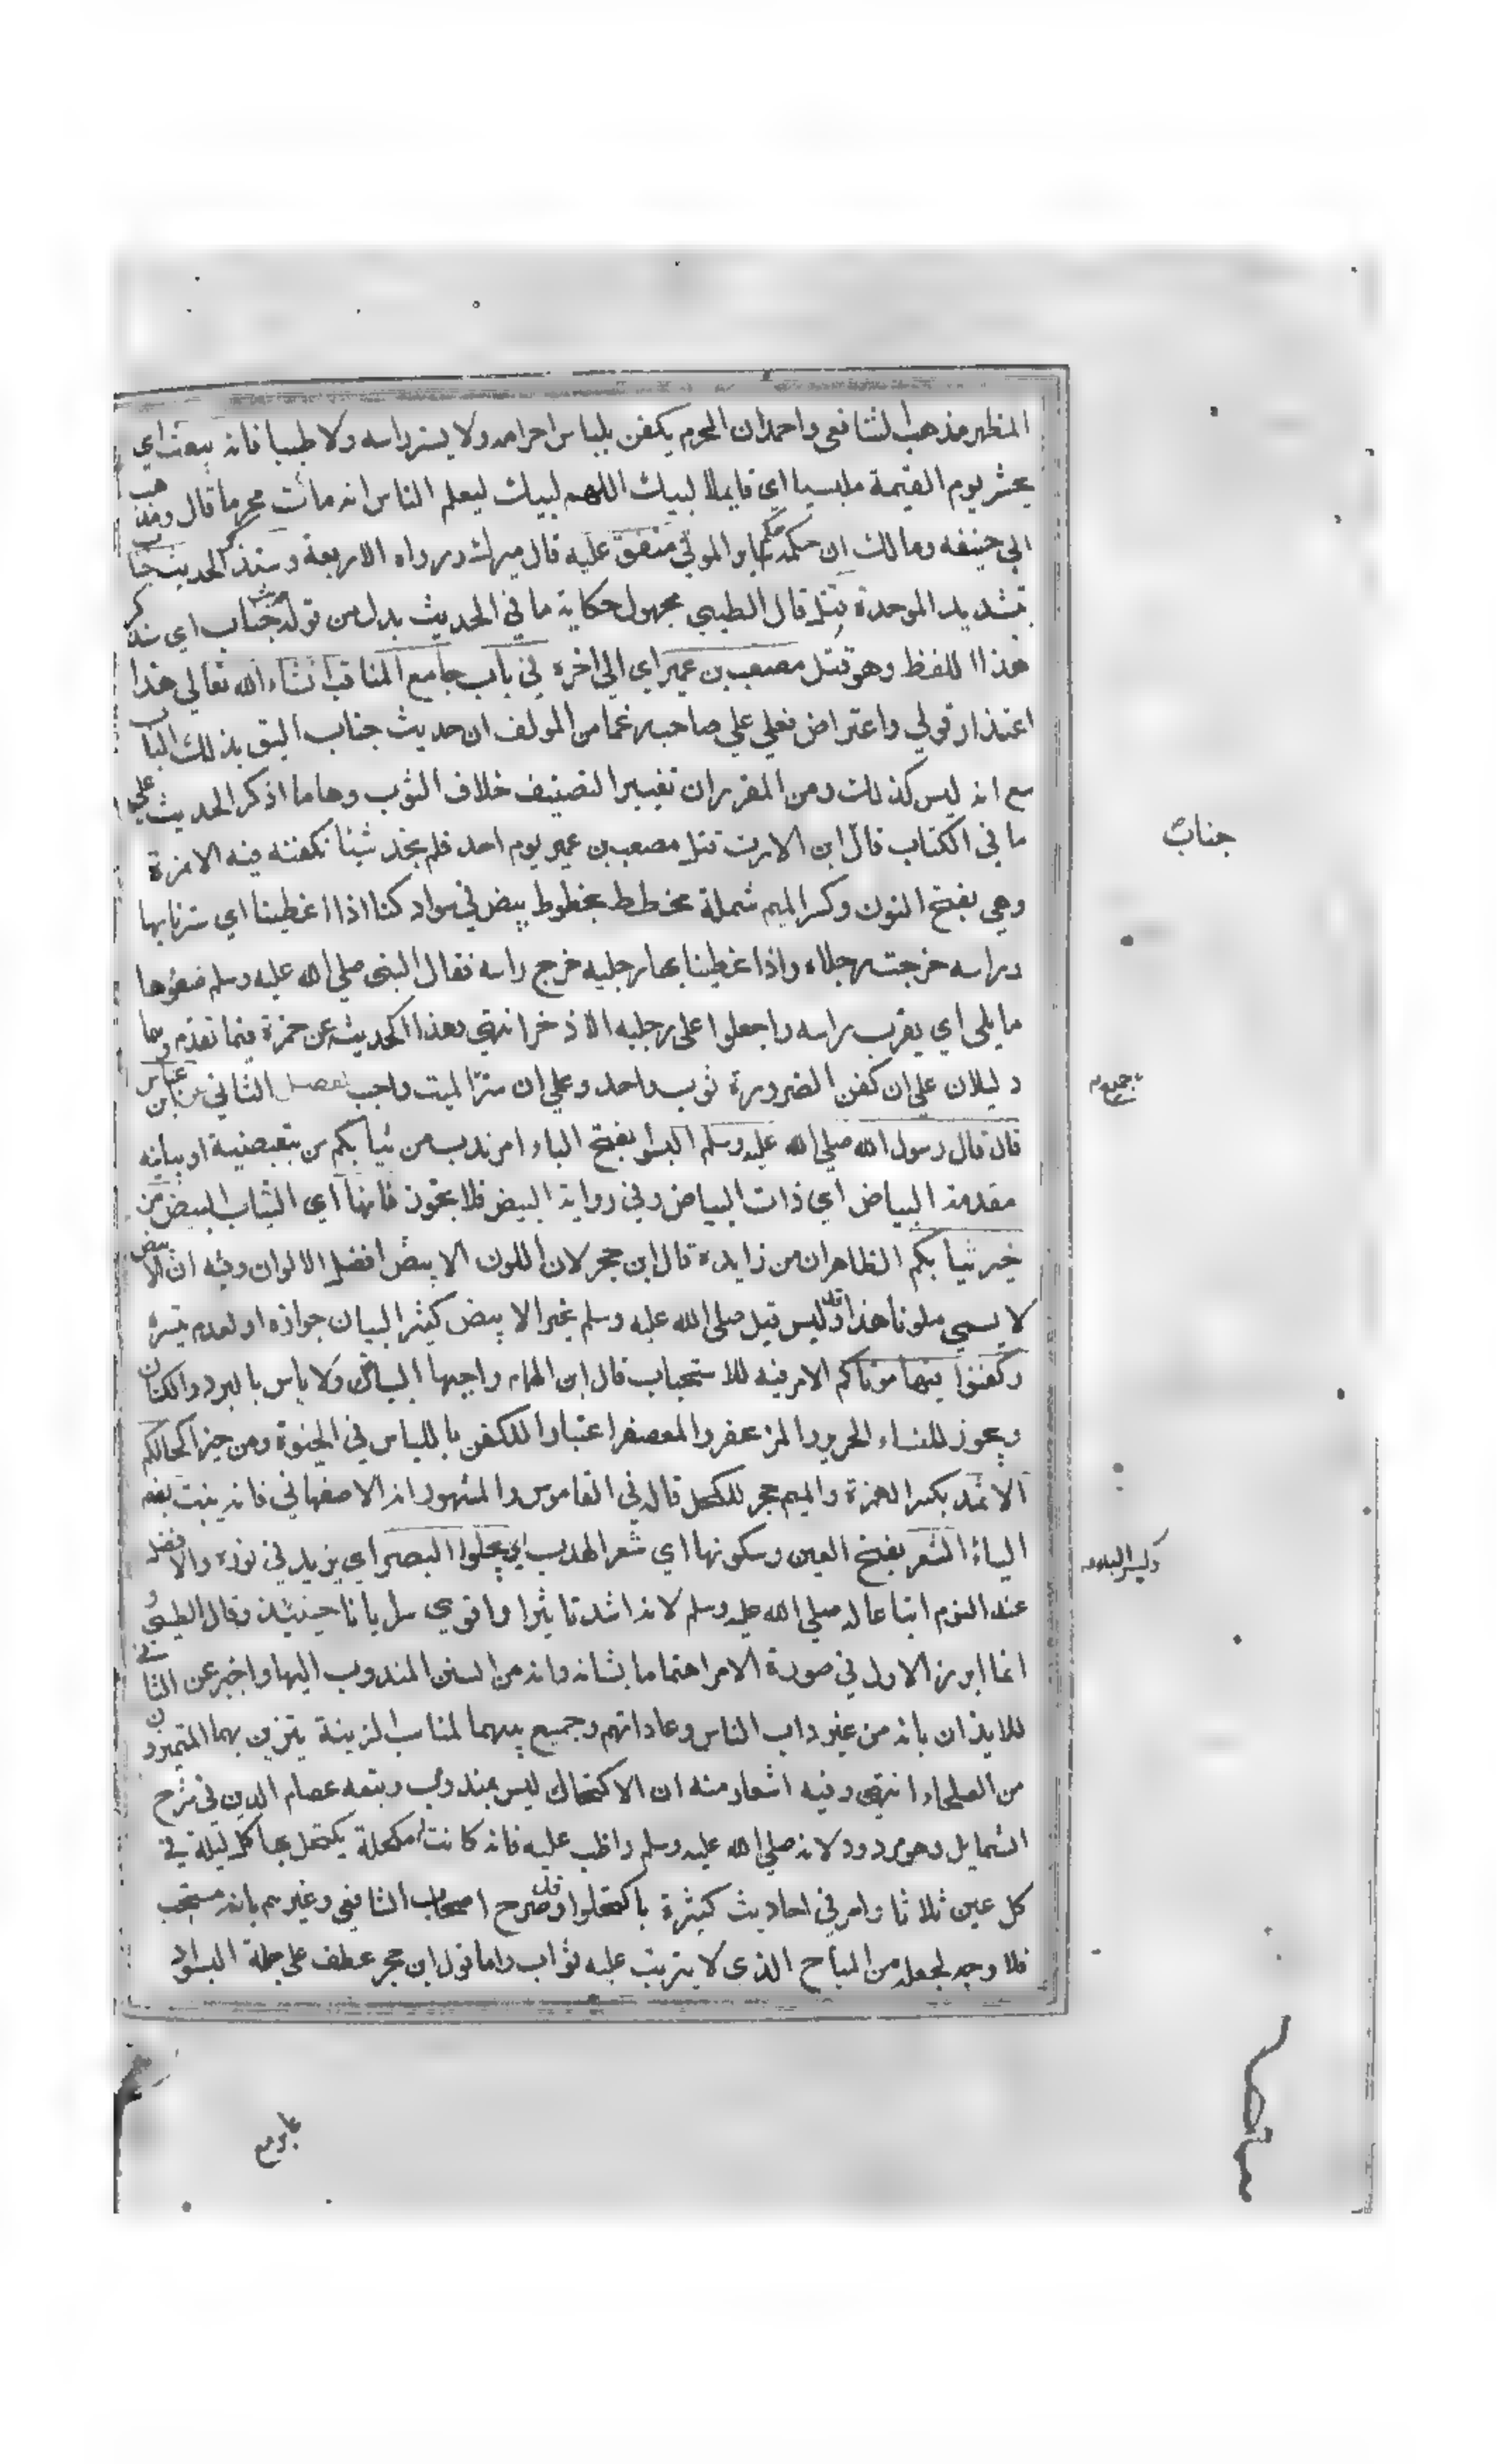 المظهر مذهب الشافعي واحمد ان المحرم يكفن بلباس احرامه ولا يستر راسه ولا طيبا فانه يبعث اي
يحشر يوم القيمة ملبسيا اي قايلا لبيك اللهم لبيك ليعلم الناس انه مات محرما قال ومذهب
ابي حنيفه ومالك ان حكمه حكم ساير الموتي متفق عليه قال ميرك ورواه الاربعة وسنذكر الحديث خباب
بتشديد الموحدة قتل قال الطيبي مجهول حكاية ما في الحديث بدل من قوله حديث خباب اي سنذكر
هذا اللفظ وهو قتل مصعب بن عمير اي الي اخره في باب جامع المناقب انشاء الله تعالي هذا
اعتذار قولي واعتراض فعلي علي صاحبه زعما من المولف ان حديث جناب اليق بذلك الباب
مع انه ليس كذلك ومن المقرر ان تغيير التصنيف خلاف الثوب وها ما اذكر الحديث علي
ما في الكتاب قال ابن الارت قتل مصعب بن عمير يوم احد فلم نجد شيئا نكفنه فيه الا نمرة
وهي بفتح النون وكسر الميم شملة مخطط بخطوط بيض في سواد كنا اذا غطينا اي سترنا بها
وراسه خرجت رجلاه واذا غطينا بها رجليه خرج راسه فقال النبي صلي الله عليه وسلم ضعوها
ما يلي اي يقرب راسه واجعلوا علي رجليه الاذخر انتهي وهذا الحديث عن حمزة فيما تقدم وهما
دليلان علي ان كفن الضرورة ثوب واحد وعلي ان ستر الميت واجب الفصل الثاني عن ابن عباس
قال قال رسول الله صلي الله عليه وسلم البسوا بفتح الباء امر ندب من ثيابكم من تبعيضية او بيانيه
مقدمة البياض اي ذات البياض وفي رواية البيض فلا تجوز فانها اي الثياب البيض من
خير ثيابكم الظاهر ان من زايدة قال ابن حجر لان اللون الابيض افضل الالوان وفيه ان الابيض
لا يسمي ملونا هذا وقد ليس قيل صلي الله عليه وسلم غير الابيض كثير البيان جوازه او لعدم تيسره
وكفنوا فيها موتاكم الامر فيه للاستحباب قال ابن الهمام واحبها البياض ولا باس بالبرد والكتان
ويجوز للنساء الحرير والمزعفر والمعصفر اعتبارا للكفن باللباس في الحيوة ومن خير اكحالكم
الاثمد بكسر الهمزة والميم حجر للكحل قاله في القاموس والمشهور انه الاصفهاني فانه ينبت بضم
الياء الشعر بفتح العين وسكونها اي شعر الهدب اي يجلوا البصر اي يزيد في نوره والافضل
عند النوم اتباعا له صلي الله عليه وسلم لانه اشد تاثيرا واقوي سريانا حينئذ وقال الطيبي و
انما ابرز الاول في صورة الامر اهتماما بشانه وانه من السنن المندوب اليها واخبر عن الثاني
للايذان بانه من غير داب الناس وعاداتهم وجميع بينهما لمناسب الزينة يتزين بهما المتميزون
من الصلحاء انتهي وفيه اشعار منه ان الاكتحال ليس بمندوب وتبعه عصام الدين في شرح
الشمايل وهو مردود لانه صلي الله عليه وسلم واظب عليه فانه كانت له مكحلة يكتحل بها كل ليلة في
كل عين ثلاثا وامر في احاديث كثيرة باكتحلوا وقد صرح اصحاب الشافعي وغيرهم بانه مستحب
فلا وجه لجعله من المباح الذي لا يترتب عليه ثواب واما قول ابن حجر عطف علي جملة البسوا
جناب